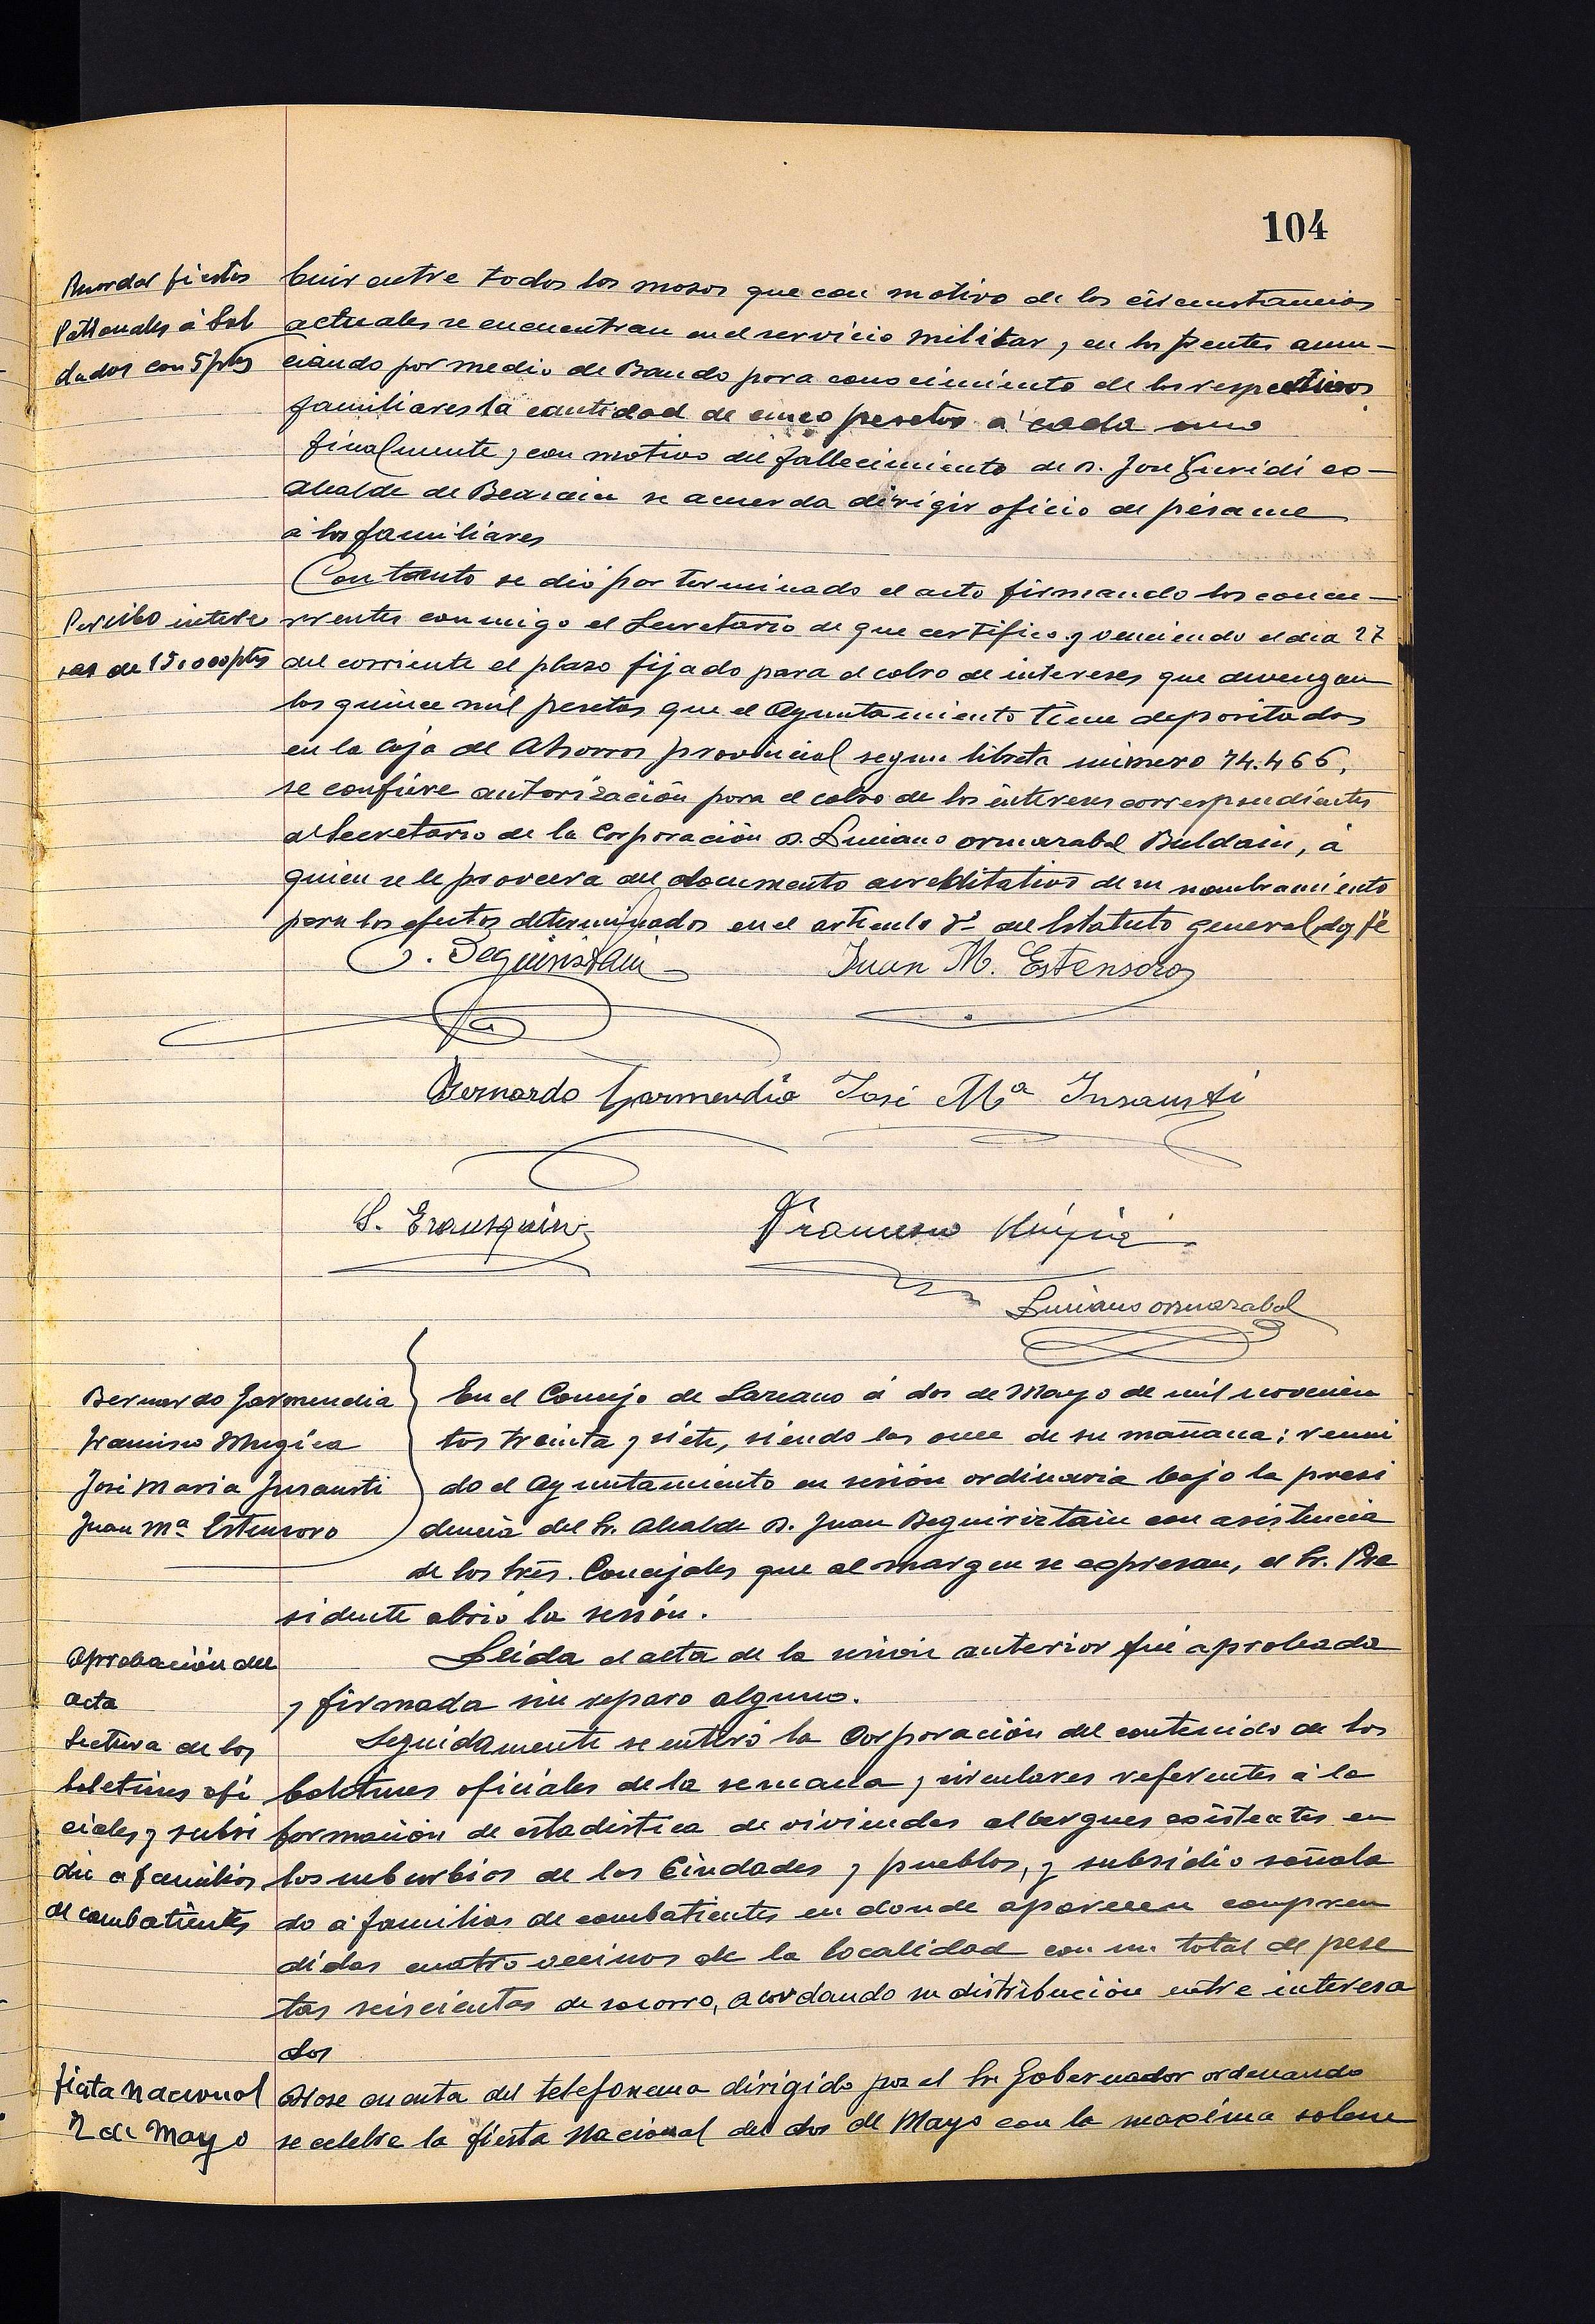 104
Recordar fiestas
Patronales á Sol
dados con 5 ptas
buir entre todos los mozos que con motivo de las circunstancias
actuales se encuentran en el servicio militar y en los frentes anun-
ciando por medio de Bando para conocimiento de los respectivos
familiares la cantidad de cinco pesetas á cada uno
Finalmente y con motivo del fallecimiento de D. José Guridi ex-
Alcalde de Beasain se acuerda dirigir oficio de pésame
á los familiares
Con tanto se dió por terminado el acto firmando los concu-
Percibo intere
ses de 15.000 ptas
rrentes conmigo el Secretario de que certifico y venciendo el dia 27
del corriente el plazo fijado para el cobro de intereses que devengan
las quince mil pesetas que el Ayuntamiento tiene depositadas
en la Caja de Ahorros provincial segun libreta número 74.466,
se confiere autorización para el cobro de los intereses correspondientes
al Secretario de la Corporación D. Luciano Ormazabal Buldain, á
quien se le proveera del documento acreditativo de su nombramiento
para los efectos determinados en el articulo 7º del Estatuto general, doy fé
J. Beguiristain
Juan M. Estensoro
Bernardo Garmendia José Mª Insausti
S. Erausquin
Francisco Múgica
Luciano Ormazabal
Bernardo Garmendia
Francisco Mugica
José Maria Insausti
Juan Mª Estensoro
En el Concejo de Lazcano á dos de Mayo de mil novecien
tos treinta y siete, siendo las once de su mañana; reuni
do el Ayuntamiento en sesión ordinaria bajo la presi
dencia del Sr. Alcalde D. Juan Beguiristain con asistencia
de los tres. Concejales que al margen se expresan, el Sr. Pre
sidente abrió la sesión.
Aprobación del
acta
Leida el acta de la sesión anterior fué aprobada
y firmada sin reparo alguno.
Lectura de los
boletines ofi
ciales y subsi
dio a familias
de combatientes
Seguidamente se enteró la Corporación del contenido de los
boletines oficiales de la semana y circulares referentes á la
formación de estadistica de viviendas albergues existentes en
los suburbios de las Ciudades y pueblos, y subsidio señala
do á familias de combatientes en donde aparecen compren
didas cuatro vecinos de la localidad con un total de pese
tas seiscientas de socorro, acordando su distribución entre interesa
dos
Fiesta Nacional
2 de Mayo
Diose cuenta del telefonema dirigido por el Sr. Gobernador ordenando
se celebre la fiesta Nacional del dos de Mayo con la maxima solem